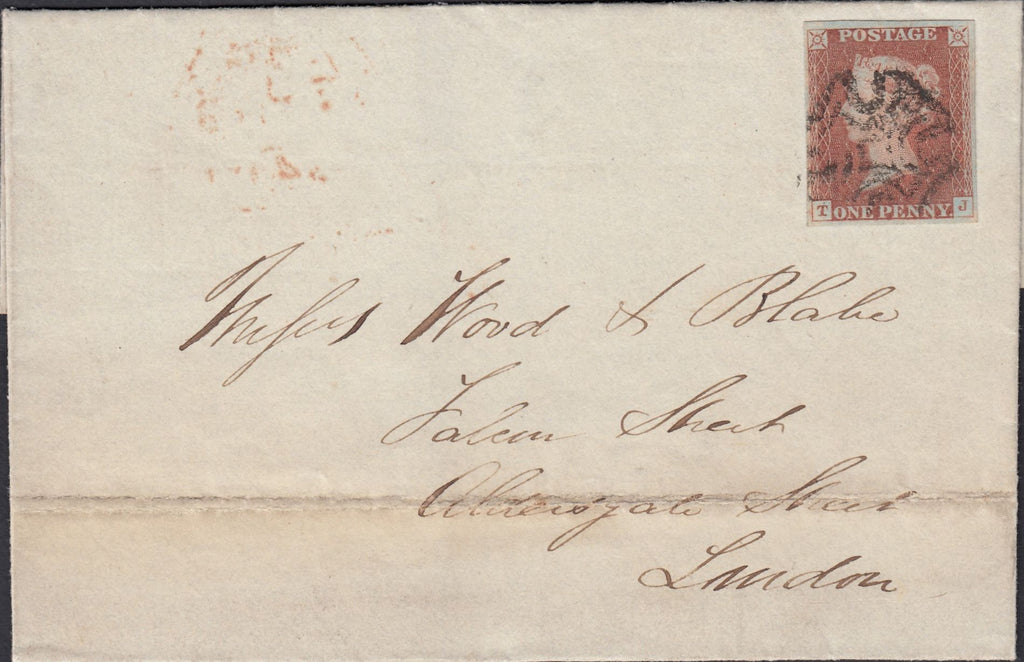 POSTAGE
T ONE PENNY J
Messrs Wood & Blake
Falcon Street
Aldersgate Street
London